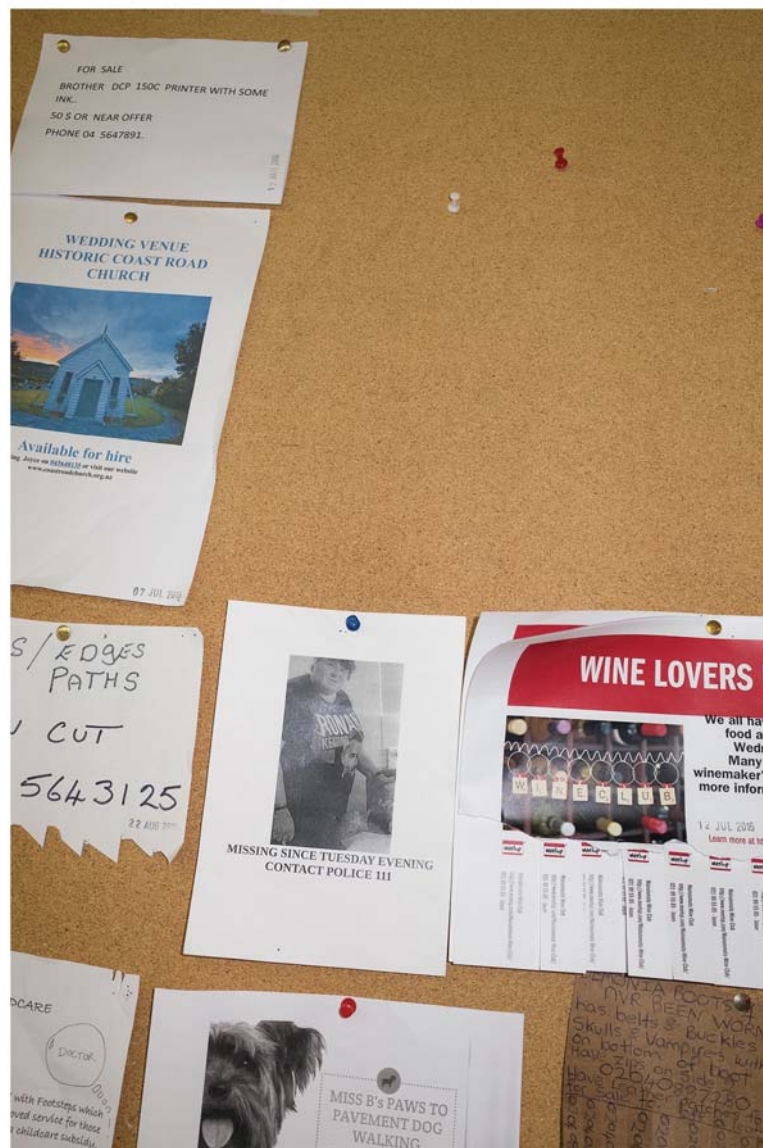 FOR SALE
BROTHER DCP 150C PRINTER WITH SOME
INK..
50 $ OR NEAR OFFER
PHONE 04 5647891.
WEDDING VENUE
HISTORIC COAST ROAD
CHURCH
Available for hire
Joyce on or visit our website
www.coastroadchurch.org.nz
07 JUL
S/EDGES
PATHS
CUT
5643125
22 AUG
MISSING SINCE TUESDAY EVENING
CONTACT POLICE 111
WINE LOVERS
We all ha
food a
Wedn
Many
winemaker'
more inform
WINE CLUB
12 JUL 2016
Learn more at
DCARE
DOCTOR
with Footsteps which
oved service for those
childcare subsidy.
MISS B's PAWS TO
PAVEMENT DOG
WALKING
BOOTS
NVR BEEN WORN
has belts & Buckles
Skulls & Vampires with
on bottom of boot
Have Zips on Side